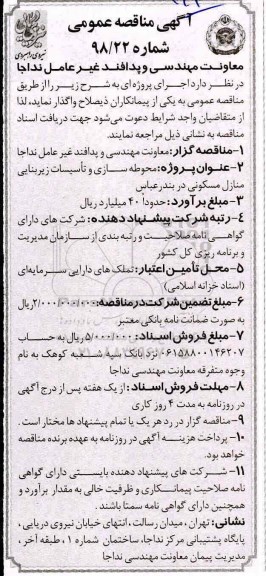 آگهی مناقصه عمومی
شماره ۹۸/۲۲
معاونت مهندسی و پدافند غیر عامل نداجا
در نظر دارد اجرای پروژه ای به شرح زیر را از طریق
مناقصه عمومی به یکی از پیمانکاران ذیصلاح واگذار نماید، لذا
از متقاضیان واجد شرایط دعوت می‌شود جهت دریافت اسناد
مناقصه به نشانی ذیل مراجعه نمایند.
۱-مناقصه گزار: معاونت مهندسی و پدافند غیر عامل نداجا
۲-عنوان پروژه: محوطه سازی و تأسیسات زیربنایی
منازل مسکونی در بندرعباس
۳-مبلغ برآورد: حدوداً ۴۰ میلیارد ریال
۴-رتبه شرکت پیشنهاد دهنده: شرکت های دارای
گواهی نامه صلاحیت و رتبه بندی از سازمان مدیریت
و برنامه ریزی کل کشور
۵-محل تأمین اعتبار: تملک های دارایی سرمایه‌ای
(اسناد خزانه اسلامی)
۶-مبلغ تضمین شرکت در مناقصه: ۲/۰۰۰/۰۰۰/۰۰۰ریال
به صورت ضمانت نامه بانکی معتبر
۷-مبلغ فروش اسناد: ۵/۰۰۰/۰۰۰ ریال به حساب
۰۶۱۵۸۸۰۰۱۴۶۲۰۷ نزد بانک سپه شعبه کوهک به نام
وجوه متفرقه معاونت مهندسی نداجا
۸-مهلت فروش اسناد: از یک هفته پس از درج آگهی
در روزنامه به مدت ۴ روز کاری
۹-مناقصه گزار در رد هر یک یا تمام پیشنهاد ها مختار است.
۱۰-پرداخت هزینه آگهی در روزنامه به عهده برنده مناقصه
خواهد بود.
۱۱-شرکت های پیشنهاد دهنده بایستی دارای گواهی
نامه صلاحیت پیمانکاری و ظرفیت خالی به مقدار برآورد و
همچنین دارای گواهی نامه سمتا باشند.
نشانی: تهران ، میدان رسالت ، انتهای خیابان نیروی دریایی ،
پایگاه پشتیبانی مرکز نداجا، ساختمان شماره ۱ ، طبقه آخر ،
مدیریت پیمان معاونت مهندسی نداجا